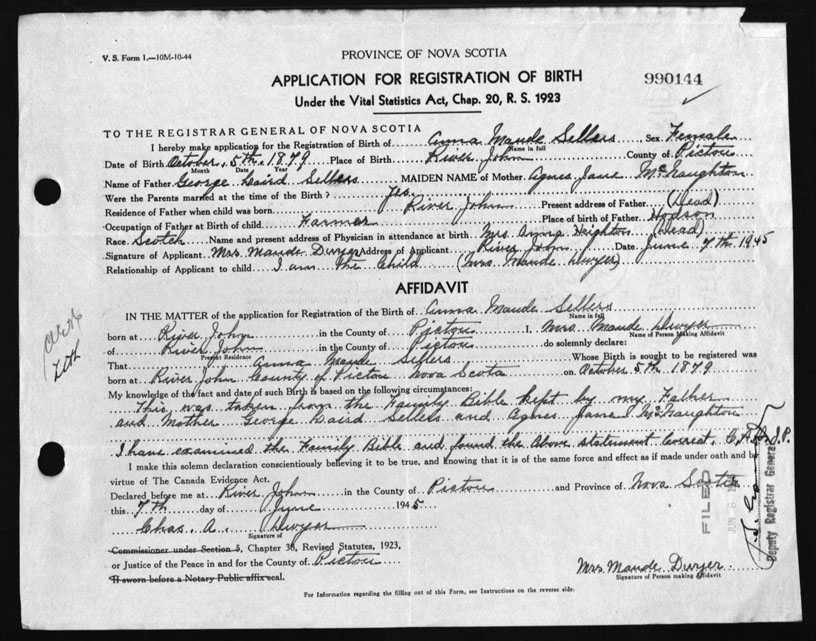 V. S. Form 1.—10M-10-44
PROVINCE OF NOVA SCOTIA
APPLICATION FOR REGISTRATION OF BIRTH
990144
Under the Vital Statistics Act, Chap. 20, R. S. 1923
TO THE REGISTRAR GENERAL OF NOVA SCOTIA
I hereby make application for the Registration of Birth of Anna Maude Sellers Sex Female
Name in full
Date of Birth October 5th 1879 Place of Birth River John County of Pictou
Month Date Year
Name of Father George Baird Sellers MAIDEN NAME of Mother Agnes Jane McNaughton
Were the Parents married at the time of the Birth? Yes
Residence of Father when child was born River John Present address of Father (Dead)
Occupation of Father at Birth of child Farmer Place of Birth of Father Hodson
Race Scotch Name and present address of Physician in attendance at birth Mrs Anna Heighton (Dead)
Signature of Applicant Mrs. Maude Dwyer Address of Applicant River John Date June 7th 1945
Relationship of Applicant to child I am the Child (Mrs Maude Dwyer)
AFFIDAVIT
IN THE MATTER of the application for Registration of the Birth of Anna Maude Sellers
Name in full
born at River John in the County of Pictou I, Mrs Maude Dwyer
Name of Person Making Affidavit
of River John in the County of Pictou do solemnly declare:
Present Residence
That Anna Maude Sellers Whose Birth is sought to be registered was
born at River John County of Pictou Nova Scotia on October 5th 1879
My knowledge of the fact and date of such Birth is based on the following circumstances:
This was taken from the Family Bible kept by my Father
and Mother George Baird Sellers and Agnes Jane McNaughton
I have examined the Family Bible and found the above statement correct. J.P.
I make this solemn declaration conscientiously believing it to be true, and knowing that it is of the same force and effect as if made under oath and by
virtue of The Canada Evidence Act.
Declared before me at River John in the County of Pictou and Province of Nova Scotia
this 7th day of June 1945
Chas. A. Dwyer
Signature of
Commissioner under Section 5, Chapter 38, Revised Statutes, 1923,
or Justice of the Peace in and for the County of Pictou
If sworn before a Notary Public affix seal.
Mrs Maude Dwyer
Signature of Person making Affidavit
For Information regarding the filling out of this Form, see Instructions on the reverse side.
FILED
JUN
Deputy Registrar General